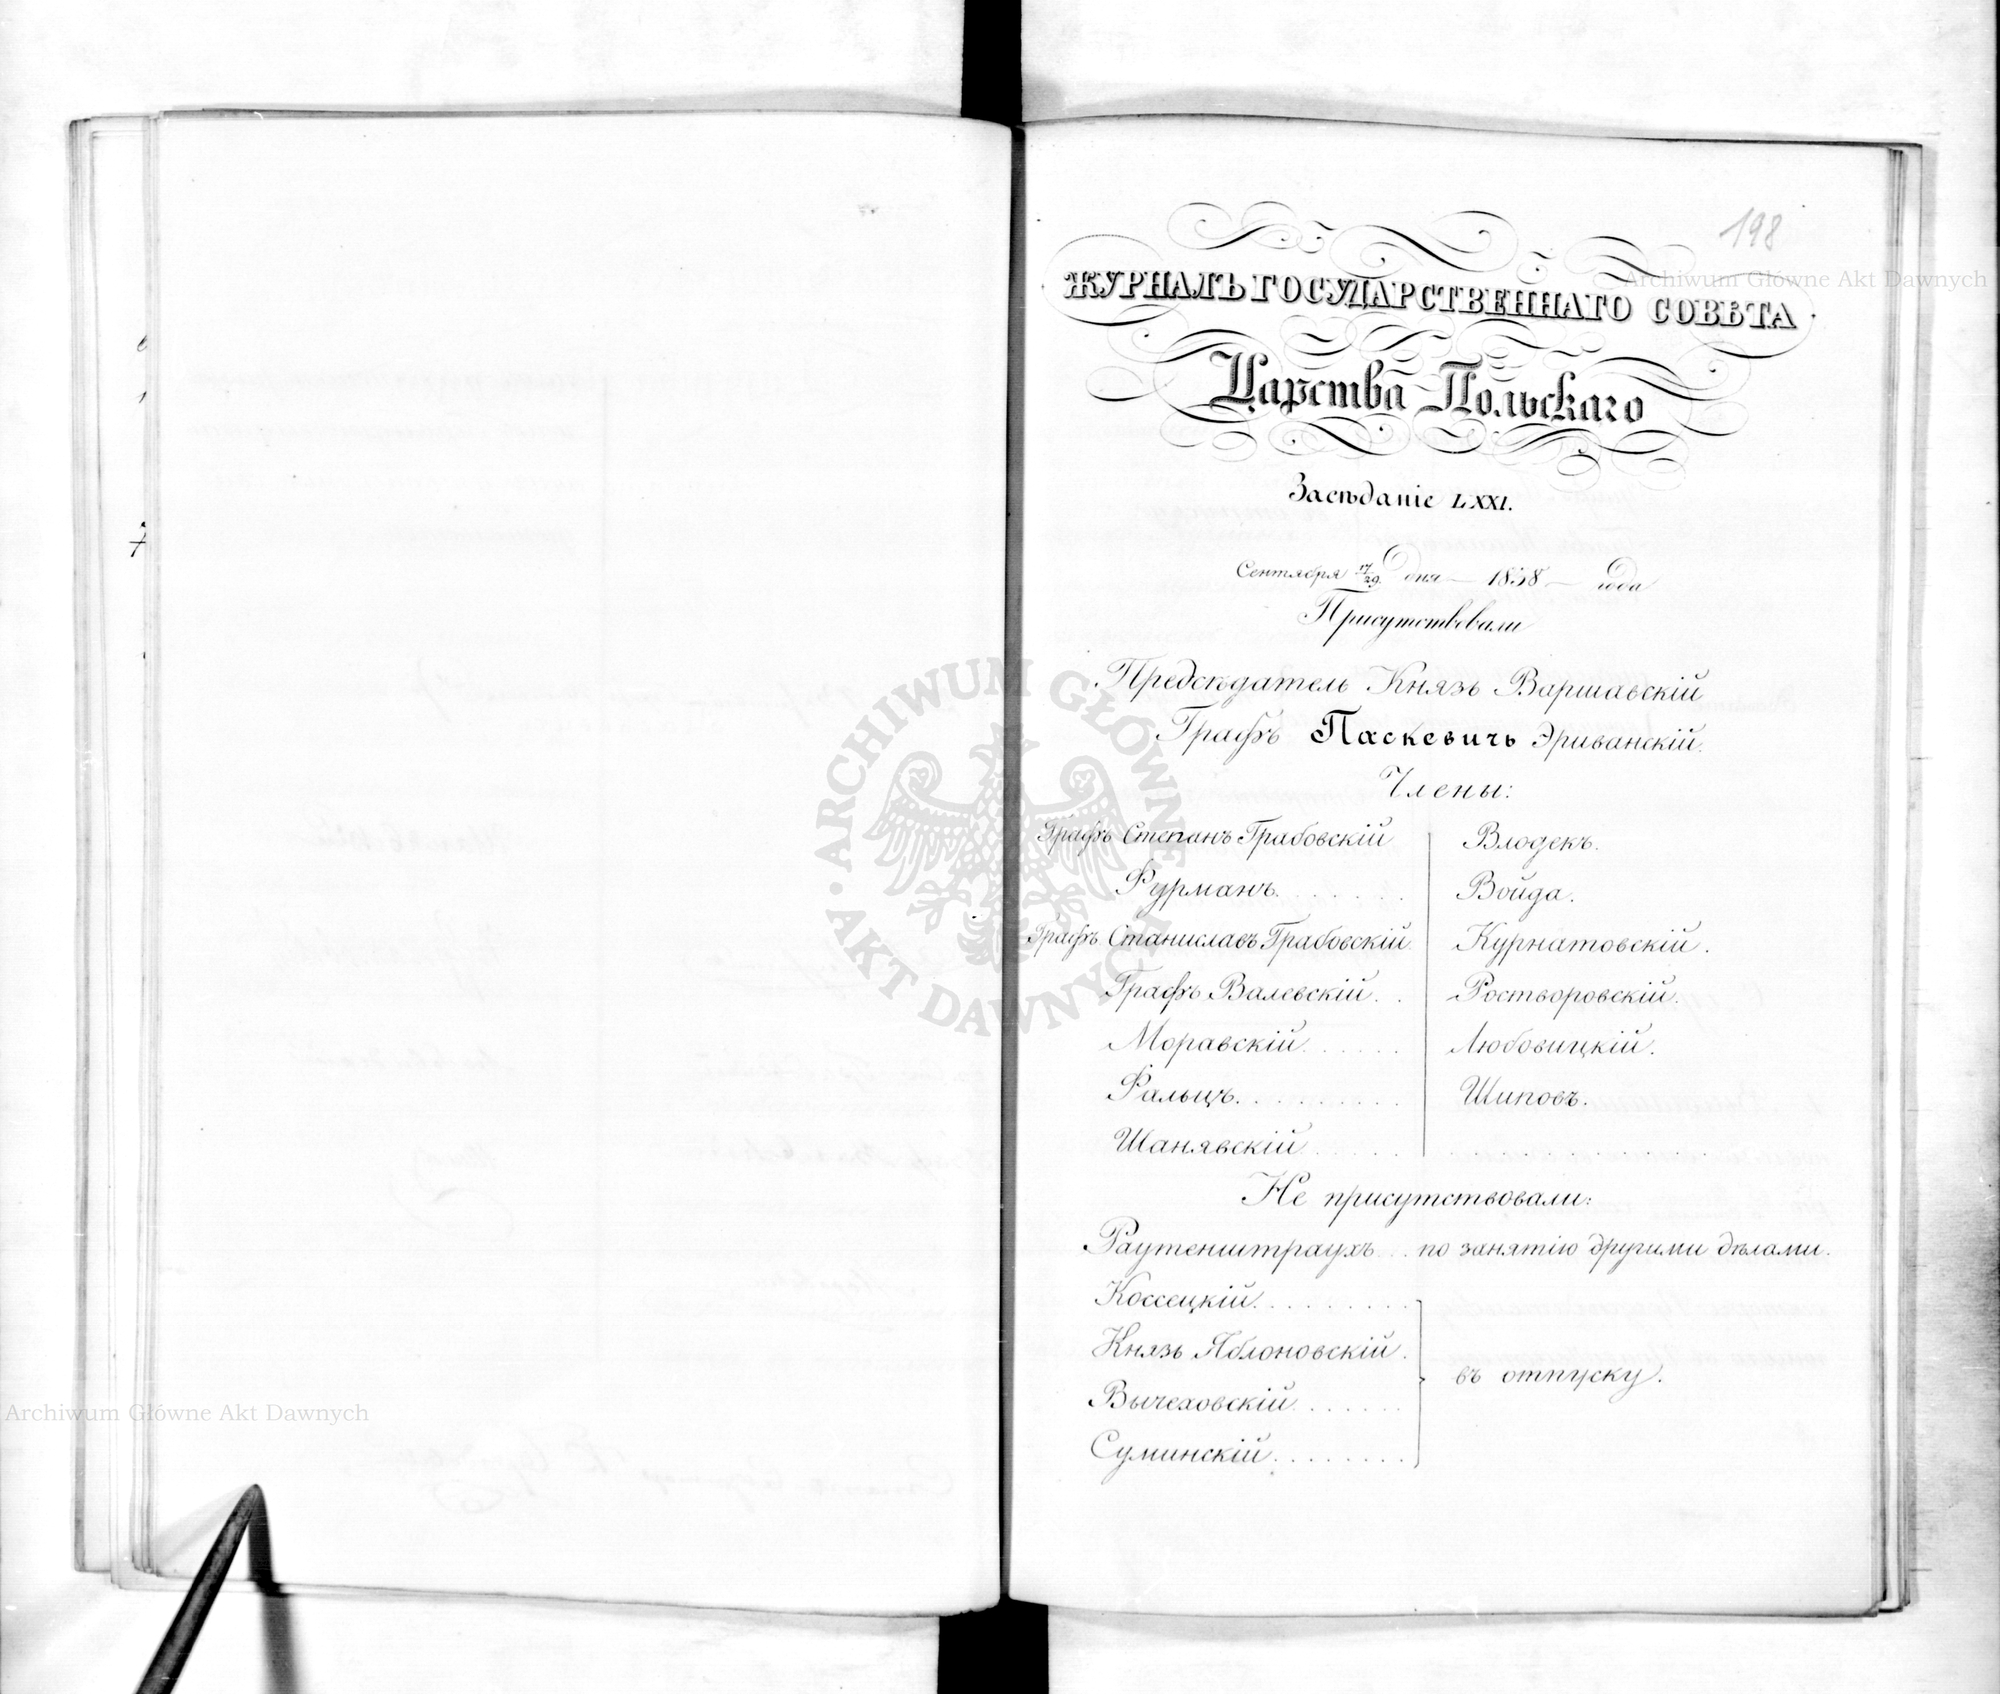 198
ЖУРНАЛЪ ГОСУДАРСТВЕННАГО СОВѢТА
Царства Польскаго
Засѣданіе LXXI.
Сентября 17/29 дня — 1838 — года
Присутствовали
Предсѣдатель Князь Варшавскій
Графъ Паскевичъ Эриванскій.
Члены:
Графъ Степанъ Грабовскій
Фурманъ.
Графъ Станиславъ Грабовскій.
Графъ Валевскій.
Моравскій.
Фальцъ.
Шанявскій.
Влодекъ.
Война.
Курнатовскій.
Ростворовскій.
Любовицкій.
Шиповъ.
Не присутствовали:
Раутенштраухъ... по занятію другими дѣлами.
Коссецкій.
Князь Яблоновскій.
Вычеховскій.
Суминскій.
въ отпуску.
Archiwum Główne Akt Dawnych
ARCHIWUM GŁÓWNE AKT DAWNYCH
Archiwum Główne Akt Dawnych